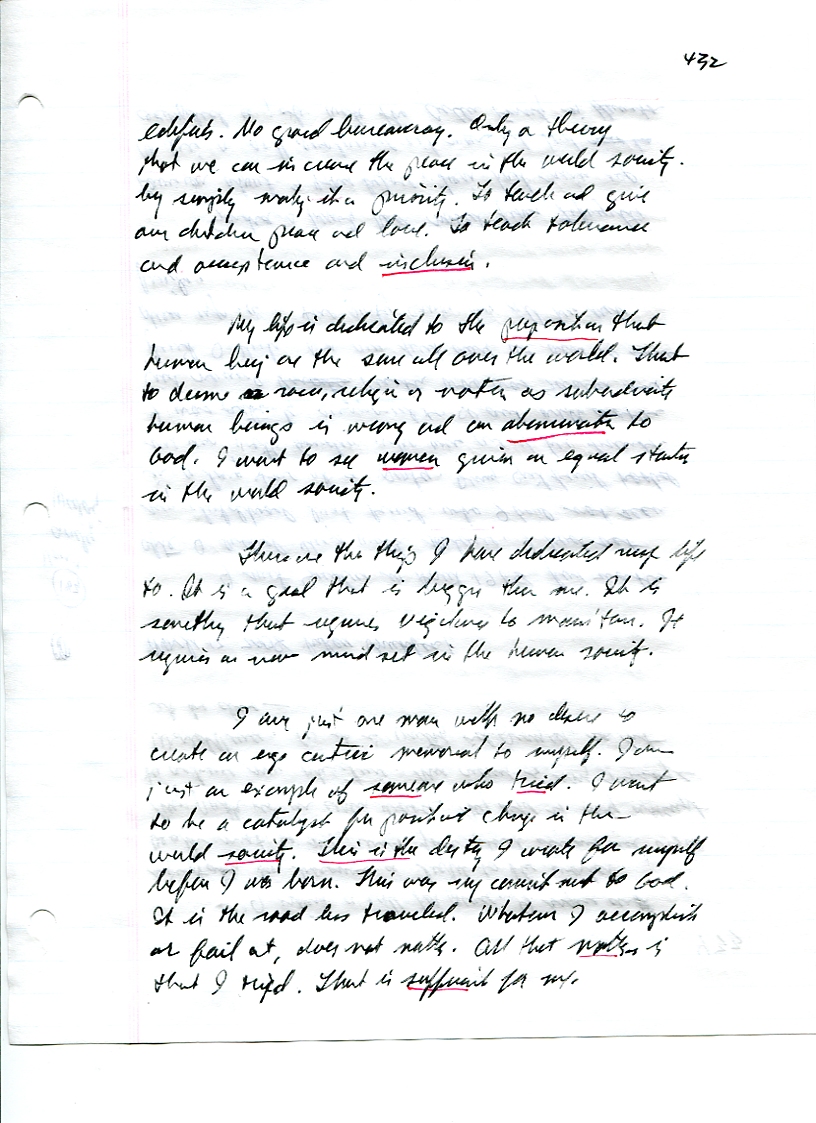 432
edifices. No grand bureaucracy. Only a theory
that we can increase the peace in the world society.
by simply making it a priority. To teach and give
our children peace and love. To teach tolerance
and acceptance and inclusion.
My life is dedicated to the proposition that
human beings are the same all over the world. That
to deem race, religion or nation as subordinate
human beings is wrong and an abomination to
God. I want to see women given an equal status
in the world society.
These are the things I have dedicated my life
to. It is a goal that is bigger than me. It is
something that requires vigilance to maintain. It
requires a new mind set in the human society.
I am just one man with no desire to
create an ego centric memorial to myself. I am
just an example of someone who tried. I want
to be a catalyst for positive change in the
world society. This is the destiny I wrote for myself
before I was born. This was my commitment to God.
It is the road less traveled. Whatever I accomplish
or fail at, does not matter. All that matters is
that I tried. That is sufficient for me.